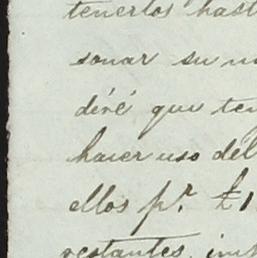 tenerlos hast
sonar su n
diré que ten
hacer uso del
ellos pr. £1
restantes, im